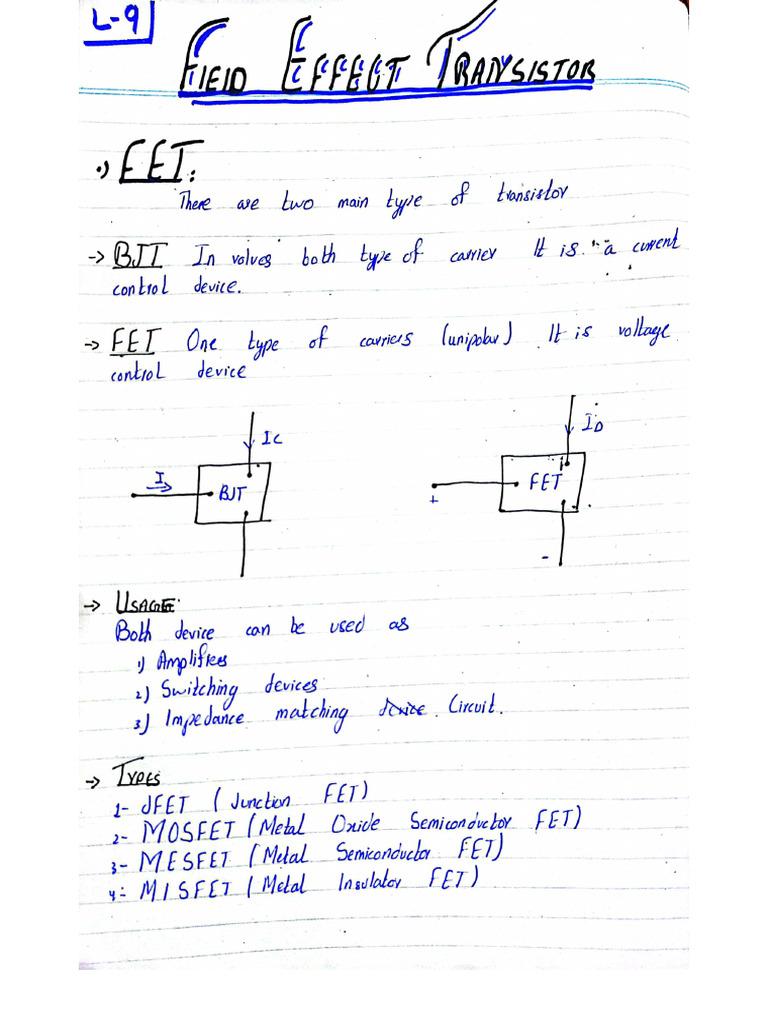 L-9
FIELD EFFECT TRANSISTOR
•) FET:
There are two main type of transistor
→ BJT In volves both type of carrier It is a current
control device.
→ FET One type of carriers (unipolar) It is voltage
control device
IC
ID
I
BJT
FET
+
-
→ USAGE:
Both device can be used as
1) Amplifiers
2) Switching devices
3) Impedance matching device Circuit.
→ TYPES
1- JFET (Junction FET)
2- MOSFET (Metal Oxide Semiconductor FET)
3- MESFET (Metal Semiconductor FET)
4- MISFET (Metal Insulator FET)